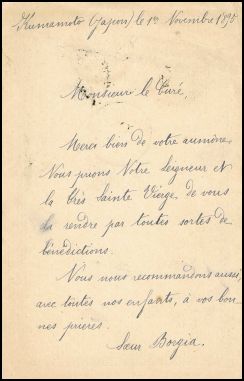 Kumamoto (Japon) le 1er Novembre 1898
Monsieur le Curé,
Merci bien de votre aumône.
Nous prions Notre Seigneur et
la très Sainte Vierge de vous
la rendre par toutes sortes de
bénédictions.
Nous nous recommandons aussi,
avec toutes nos enfants, à vos bon-
nes prières.
Sœur Borgia.